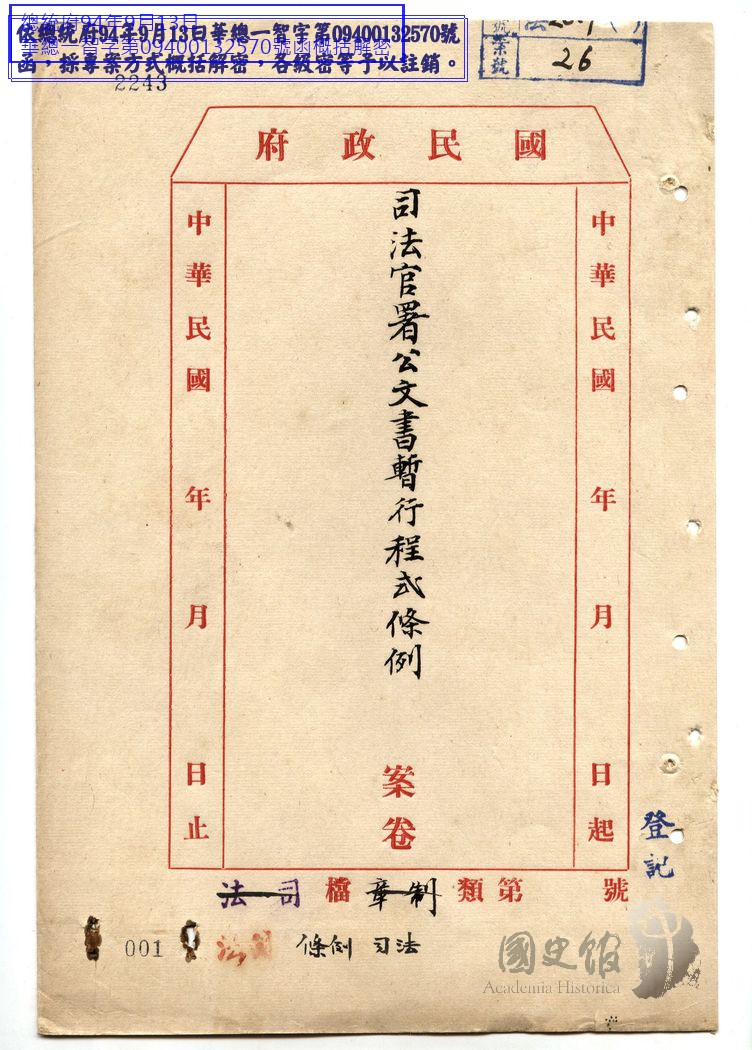 總統府94年9月13日
華總一智字第09400132570號函概括解密
依總統府94年9月13日華總一智字第09400132570號
函，採專案方式概括解密，各級密等予以註銷。
2243
號
案號
26
國民政府
中華民國 年 月 日起
司法官署公文書暫行程式條例
案卷
中華民國 年 月 日止
登記
號
第
類
制章
檔
司法
司法
條例
001
國史館
Academia Historica